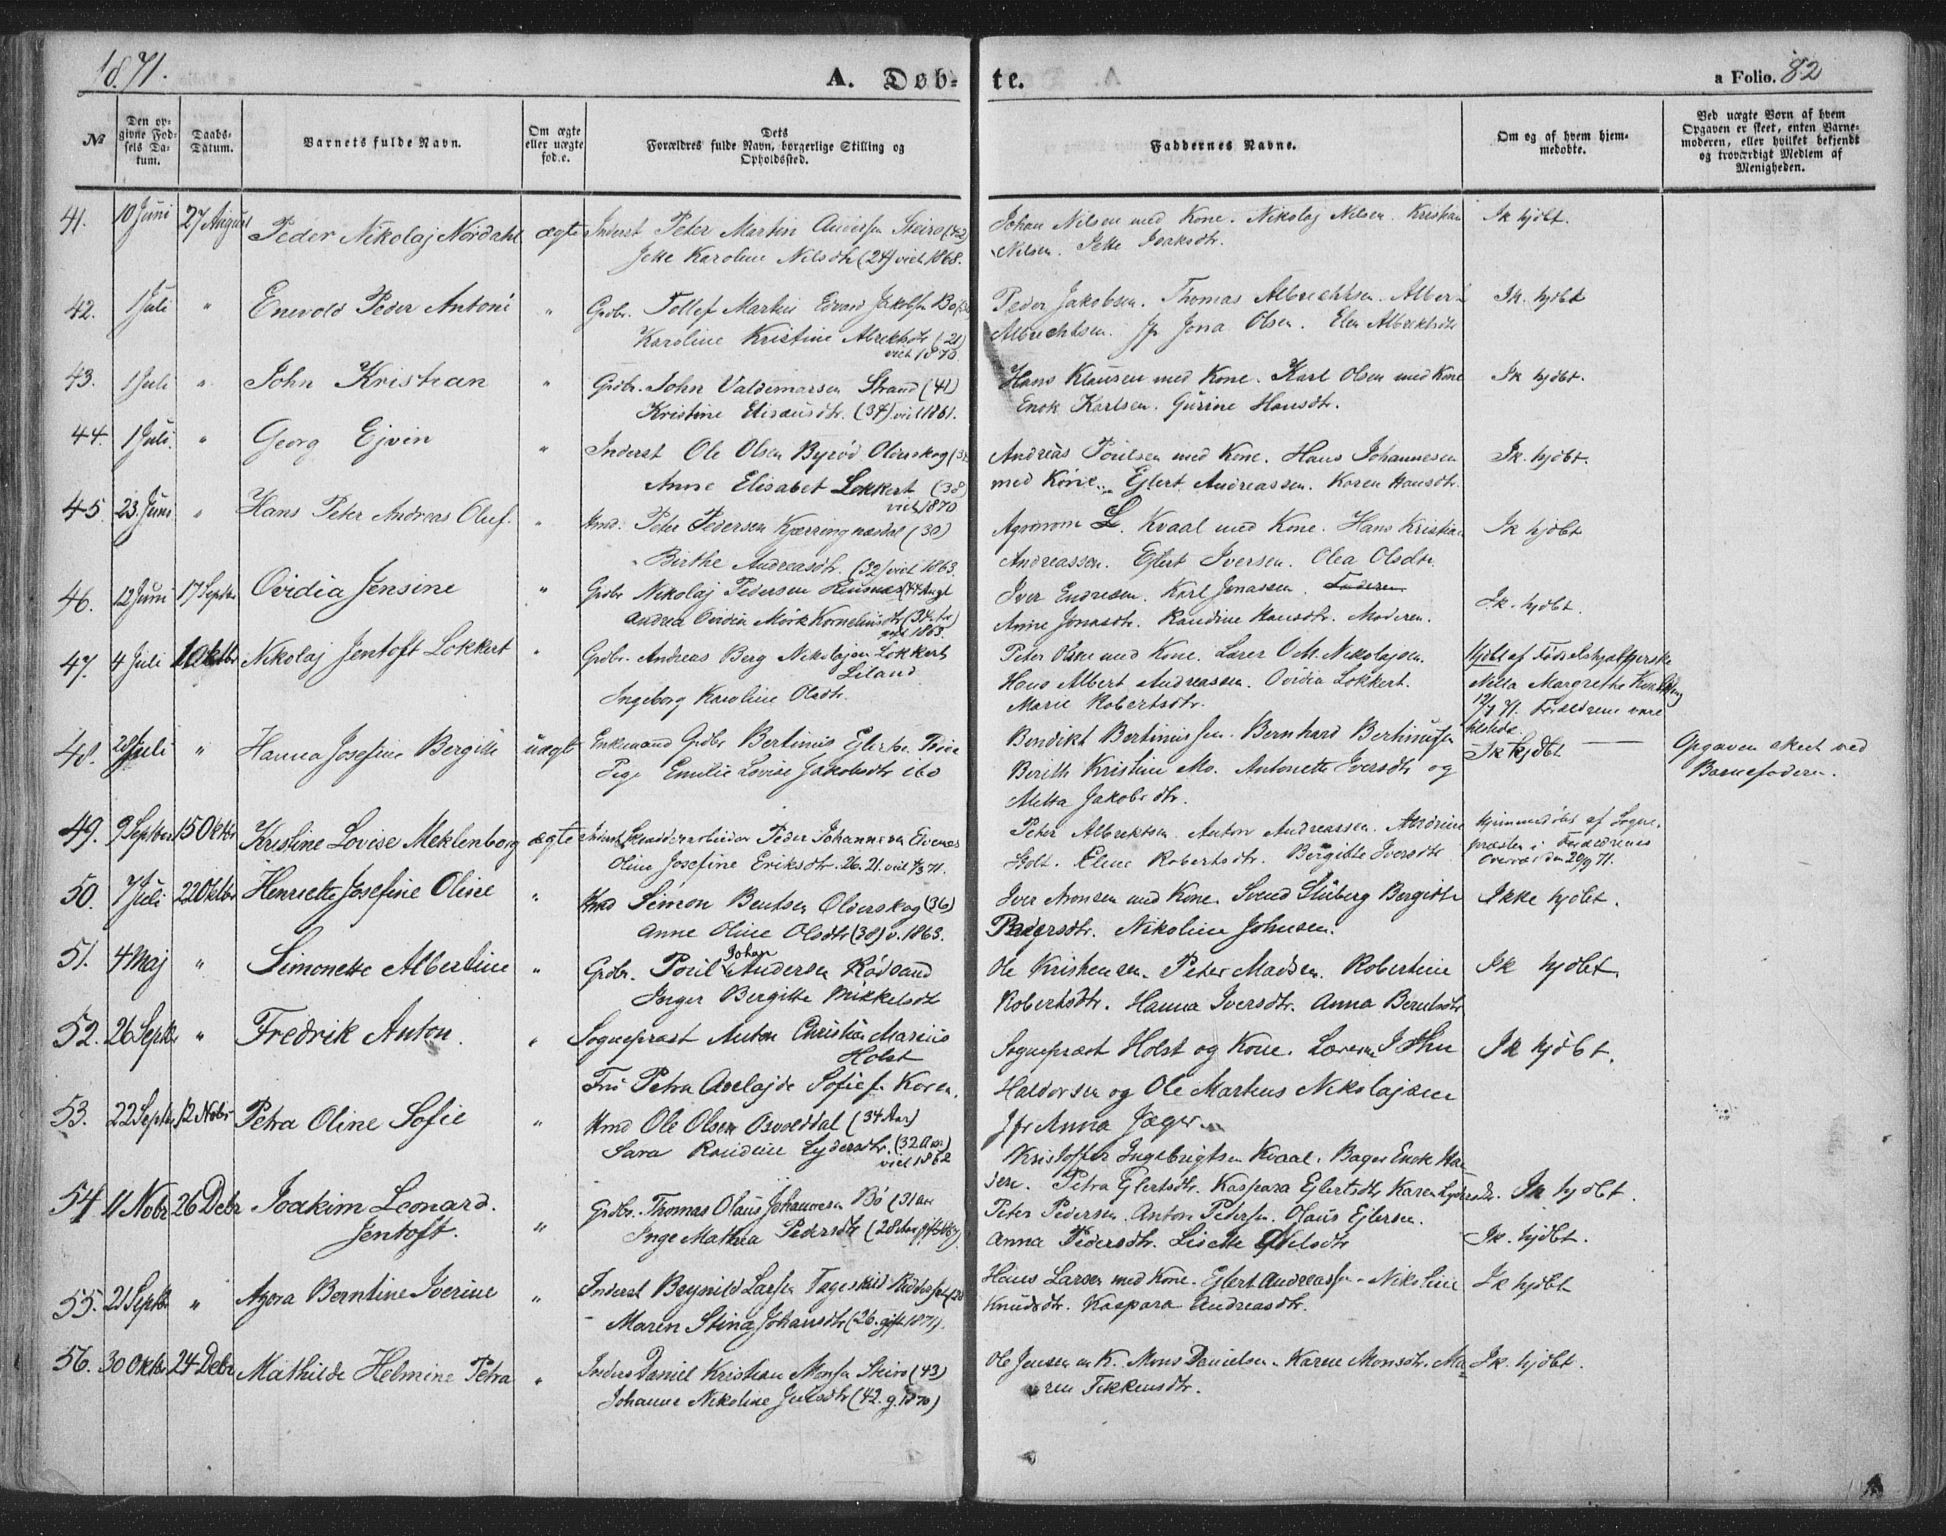 1871.
A. Døb-
te.
a Folio. 82
№
Den op-
givne Fød-
sels Da-
tum.
Daabs-
Datum.
Barnets fulde Navn.
Om ægte
eller uægte
fød.e.
Dets
Forældres fulde Navn, borgerlige Stilling og
Opholdssted.
Faddernes Navne.
Om og af hvem hjem-
medøbte.
Ved uægte Børn af hvem
Opgaven er skeet, enten Barne-
moderen, eller hvilket bekjendt
og troværdigt Medlem af
Menigheden.
41. 10 Juni 27 August Peder Nikolaj Nordahl ægte Inderst Peter Martin Steiro (42)
Jette Karoline Nilsdtr (24) viet 1868.
Johan Nilsen med Kone. Nikolaj Nilsen. Kristian
Nilsen. Jette Isaksdtr.
Ik hjdbt.
42. 1 Juli " Enevold Peder Antoni " Grdbr. Tollef Martin Edvard Jakobsen
Karoline Kristine (21)
viet 1870
Peder Jakobsen. Thomas Albrechtsen. Albert
Albrechtsen. Jfr Jona Olsen. Elen Albrektsdtr
Ik. hjdbt
43. 1 Juli " John Kristian " Grdbr. John Valdemarsen Strand (41)
Kristine Elisæusdtr. (34) viet 1861.
Hans Klausen med Kone. Karl Olsen med Kone
Enok Karlsen. Gurine Hansdtr.
Ik hjdbt.
44. 1 Juli. " Georg Ejvin " Inderst Ole Olsen Byrød Olderskog
Anne Elisabet Lokkert (38)
viet 1870
Andreas Poulsen med Kone. Hans Johannesen
med Kone. Ejlert Andreassen. Karen Hansdtr.
Ik. hjdbt.
45. 23 Juni " Hans Peter Andreas Oluf. " Hmd. Peter Pedersen Kjærringnæsdal (30)
Birthe Andreasdtr. (32) viet 1863.
Agronom L. Kvaal med Kone. Hans Kristian
Andreassen. Ejlert Iversen. Olea Olsdtr.
Ik hjdbt
46. 12 Juni 17 Septbr Ovidia Jensine " Grdbr Nikolaj Pedersen
Andrea Ovidia Mörk Kornelius
viet 1863.
Iver Endresen. Karl Jonassen. Faderen
Anne Jonasdtr. Randine Hansdtr. Moderen.
Ik. hjdbt.
47. 4 Juli 1 Oktbr Nikolaj Jentoft Lokkert " Grdbr. Andreas Berg Nikolajsen Lokkert
Liland
Ingeborg Karoline Olsdtr.
Peter Olsen med Kone. Lærer O.M. Nikolajsen.
Hans Albert Andreassen. Ovidia Lokkert.
Marie Robertsdtr.
Hjdbt af Fødselshjælperske
Netta Margrethe
12/7 71. Forældrene vare
tilstede.
48. 28 Juli " Hanna Josefine Bergitte uægte Enkemand Grdbr Bertinus Ejlersen
Pige Emilie Lovise Jakobsdtr ibd
Bendikt Bertinussen. Bernhard Bertinussen
Berith Kristine Mo. Antonette Iversdtr og
Metta Jakobsdtr.
Ik hjdbt
Opgaven skeet ved
Barnefaderen.
49. 9 Septbr 15 Oktbr Kristine Lovise Meklenborg ægte Inderst Peder Johannesen Evenes
Oline Josefine Eriksdtr. 26. 21. viet 71.
Peter Albrektsen. Anton Andreassen. Andrine
Holt. Elene Robertsdtr. Bergitte Iversdtr
Hjemmedøbt af Sogne-
præsten i Forældrenes
Overvær den 20/9 71.
50. 7 Juli 22 Oktbr Henriette Josefine Oline " Hmd Simon Bentsen Olderskog (36)
Anne Oline Olsdtr (38) v. 1863.
Iver Aronsen med Kone. Svend Stüberg Bergitte
Pedersdtr. Nikoline Johnsen.
Ikke hjdbt.
51. 4 Maj " Simonette Albertine " Grdbr. Poul Johan Andersen Rödsand
Inger Bergitte Mikkelsdtr
Ole Kristensen. Peter Madsen. Robertine
Robertsdtr. Hanna Iversdtr. Anna Berntsdtr
Ik hjdbt.
52. 26 Septbr " Fredrik Anton. " Sognepræst Anton Christian Marius
Holst
Fru Petra Avelajde Sofie f. Koren.
Sognepræst Holst og Kone. Lærerne
Haldorsen og Ole Martens Nikolajsen
Jfr Anna Jæger.
Ik hjdbt.
53. 22 Septbr 12 Nobr Petra Oline Sofie " Hmd Ole Olsen Osvolddal (34 Aar)
Sara Randine Lydersdtr. (32 Aar)
viet 1862
Kristoffer Ingebrigtsen Kvaal. Bager Enok
Petra Ejlertsdtr. Kaspara Ejlertsdtr Karen Lydersdtr. Ik. hjdbt.
54. 11 Nobr 26 Debr Joakim Leonard.
Jentoft. " Grdbr. Thomas Olaus Johannesen Bö (31 Aar
Inge Mathea Pedersdtr (28
Peter Pedersen. Anton Petersen. Olaus Ejlersen.
Anna Pedersdtr. Lisette Nilsdtr
Ik. hjdbt.
55. 21 Septbr " Agora Berntine Iverine " Inderst Brynild Larsen
Maren Stina Johansdtr (26. gift 1871).
Hans Larsen med Kone. Ejlert Andreassen. Nikoline
Knudsdtr. Kaspara Andreasdtr.
Ik hjdbt
56. 30 Oktbr 24 Debr Mathilde Helmine Petra " Inderst Daniel Kristian Monsen Steiro (43)
Johanne Nikoline (42. g. 1870)
Ole Jensen m K. Mons Danielsen. Karen Monsdtr. Ma-
ren Tikkensdtr.
Ik. hjdbt.